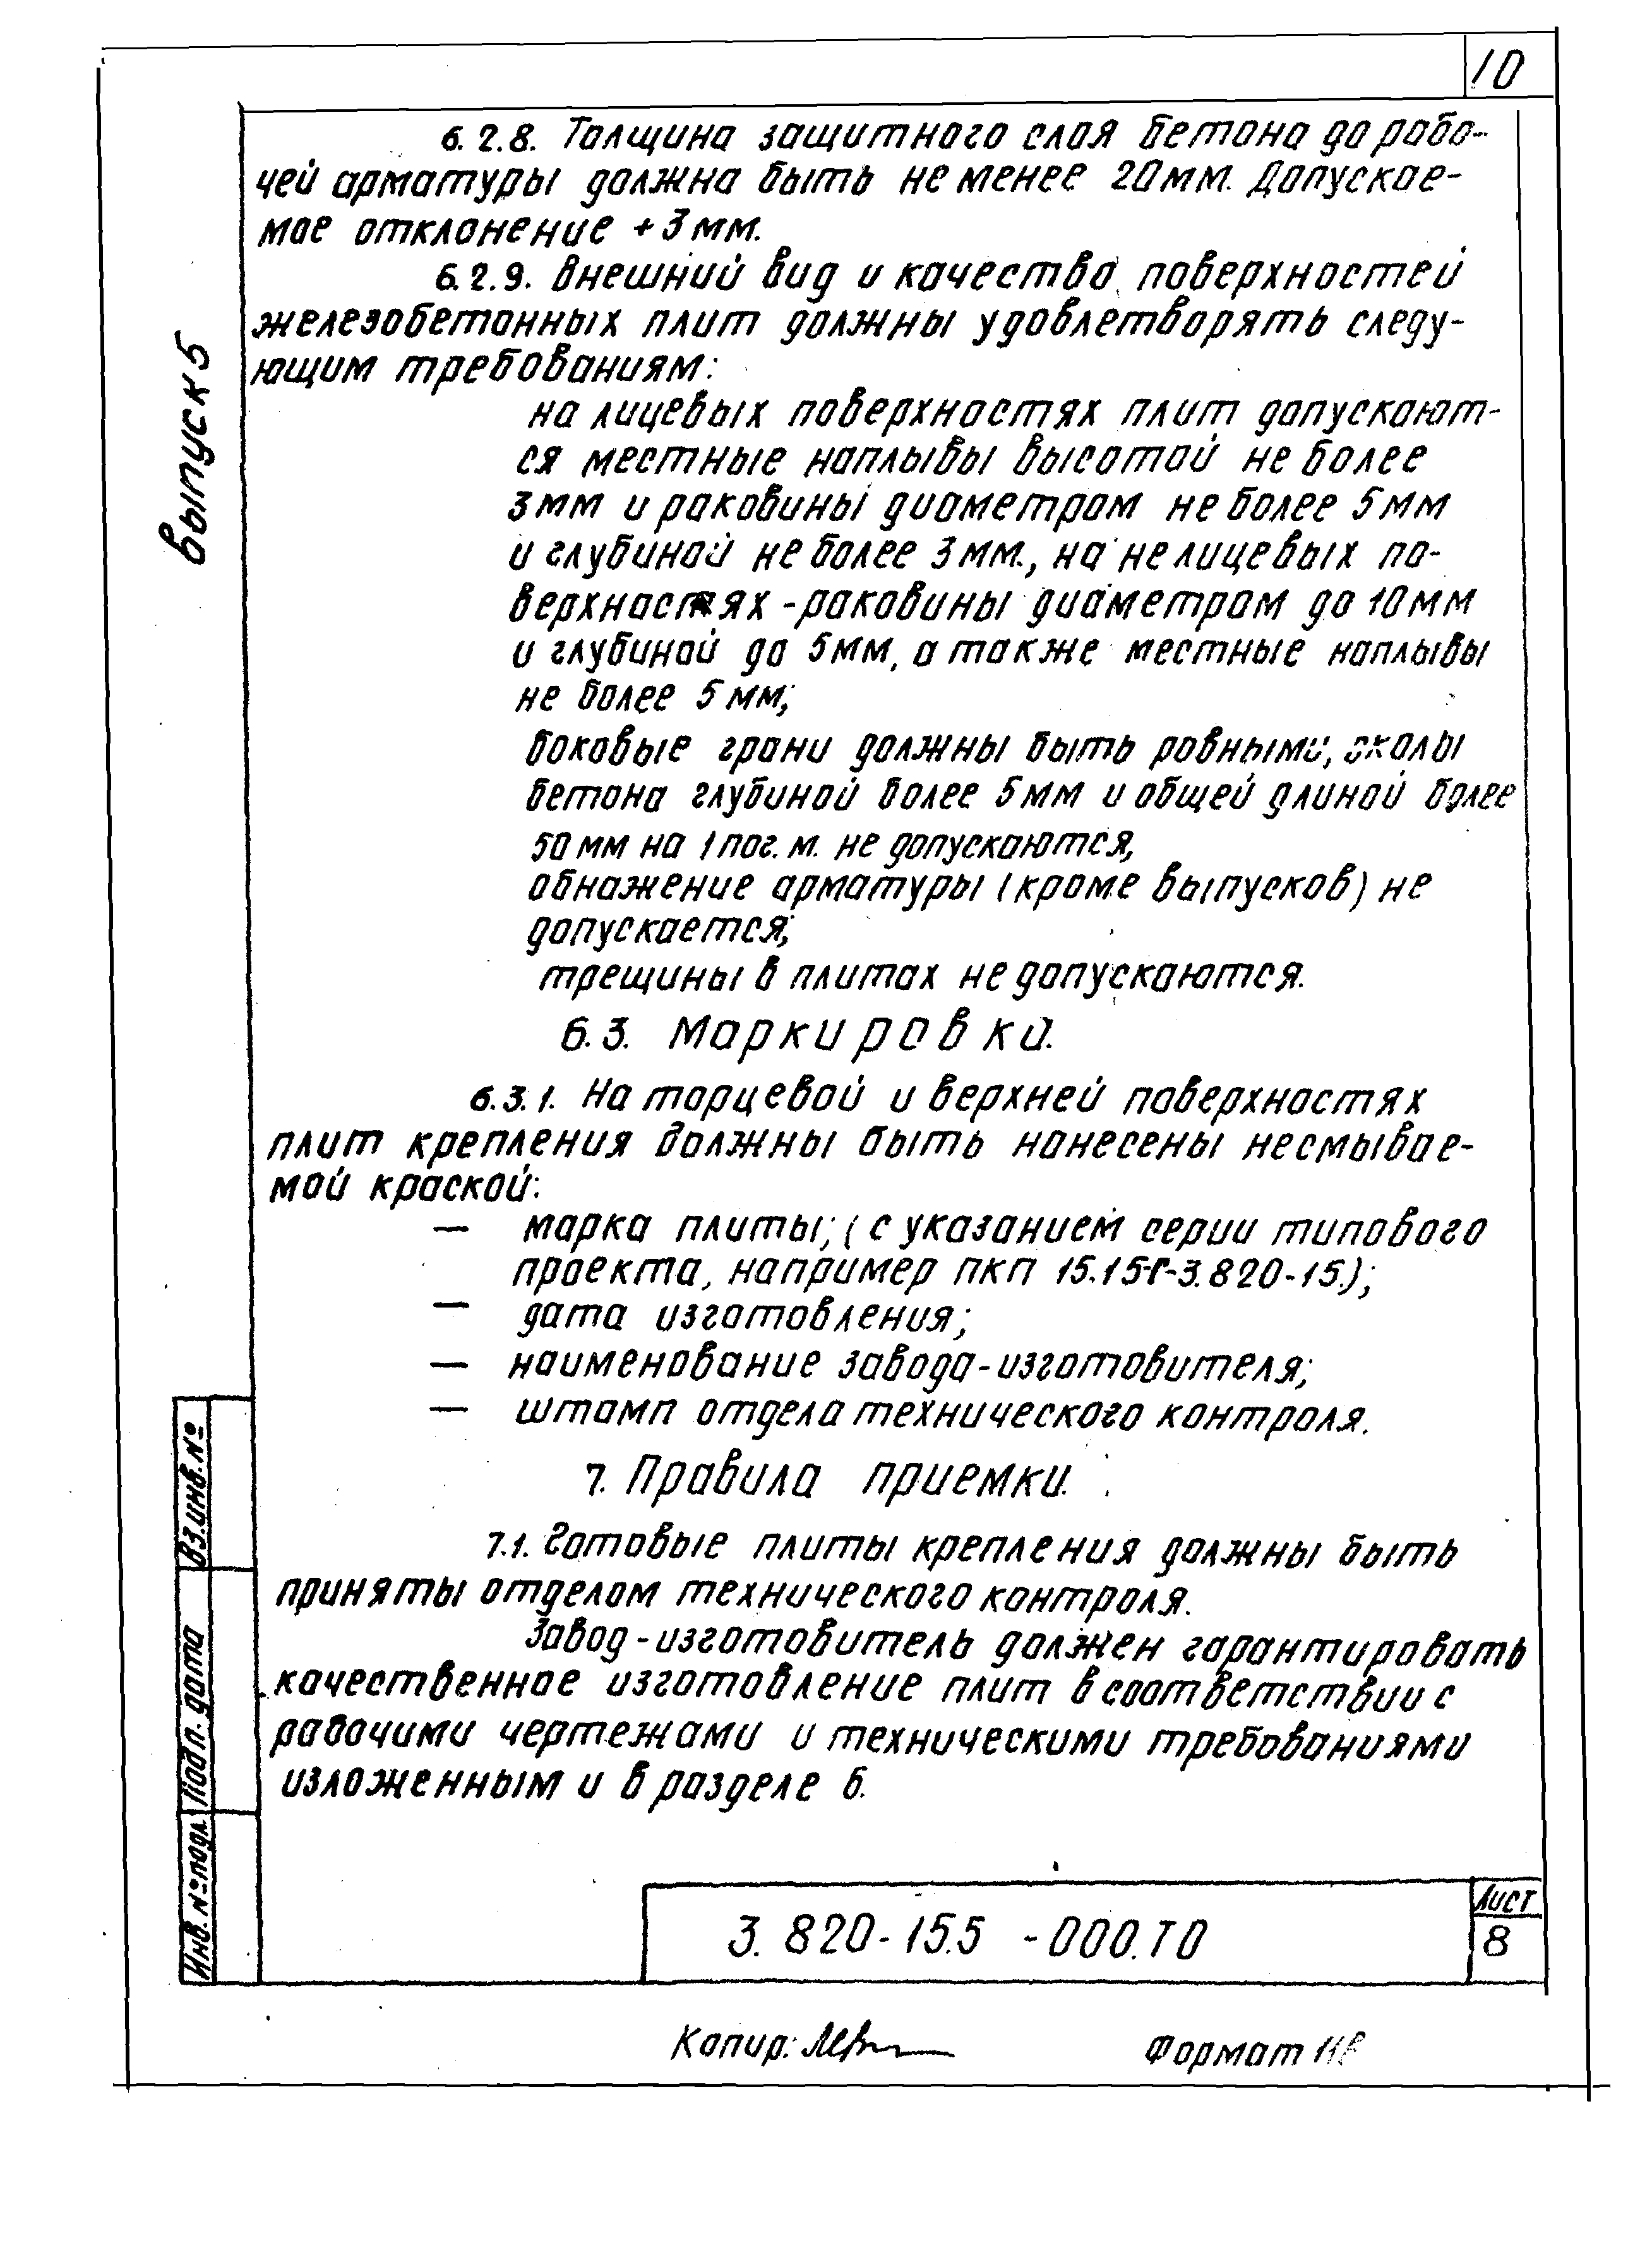 10
выпуск 5
6.2.8. Толщина защитного слоя бетона до рабо-
чей арматуры должна быть не менее 20мм. Допускае-
мое отклонение + 3 мм.
6.2.9. Внешний вид и качество поверхностей
железобетонных плит должны удовлетворять следу-
ющим требованиям:
на лицевых поверхностях плит допускают-
ся местные наплывы высотой не более
3мм и раковины диаметром не более 5мм
и глубиной не более 3мм., на не лицевых по-
верхностях - раковины диаметром до 10мм
и глубиной до 5мм, а также местные наплывы
не более 5 мм;
боковые грани должны быть ровными, сколы
бетона глубиной более 5мм и общей длиной более
50 мм на 1 пог. м. не допускаются,
обнажение арматуры (кроме выпусков) не
допускается;
трещины в плитах не допускаются.
6.3. Маркировка.
6.3.1. На торцевой и верхней поверхностях
плит крепления должны быть нанесены несмывае-
мой краской:
— марка плиты; (с указанием серии типового
проекта, например пкп 15.15-Г-3.820-15.);
— дата изготовления;
— наименование завода-изготовителя;
— штамп отдела технического контроля.
7. Правила приемки.
7.1. Готовые плиты крепления должны быть
приняты отделом технического контроля.
Завод-изготовитель должен гарантировать
качественное изготовление плит в соответствии с
рабочими чертежами и техническими требованиями
изложенным и в разделе 6.
Вз.инв.№
Подп. дата
Инв.№подл
3.820-15.5 -000.ТО
Лист
8
Копир:
Формат